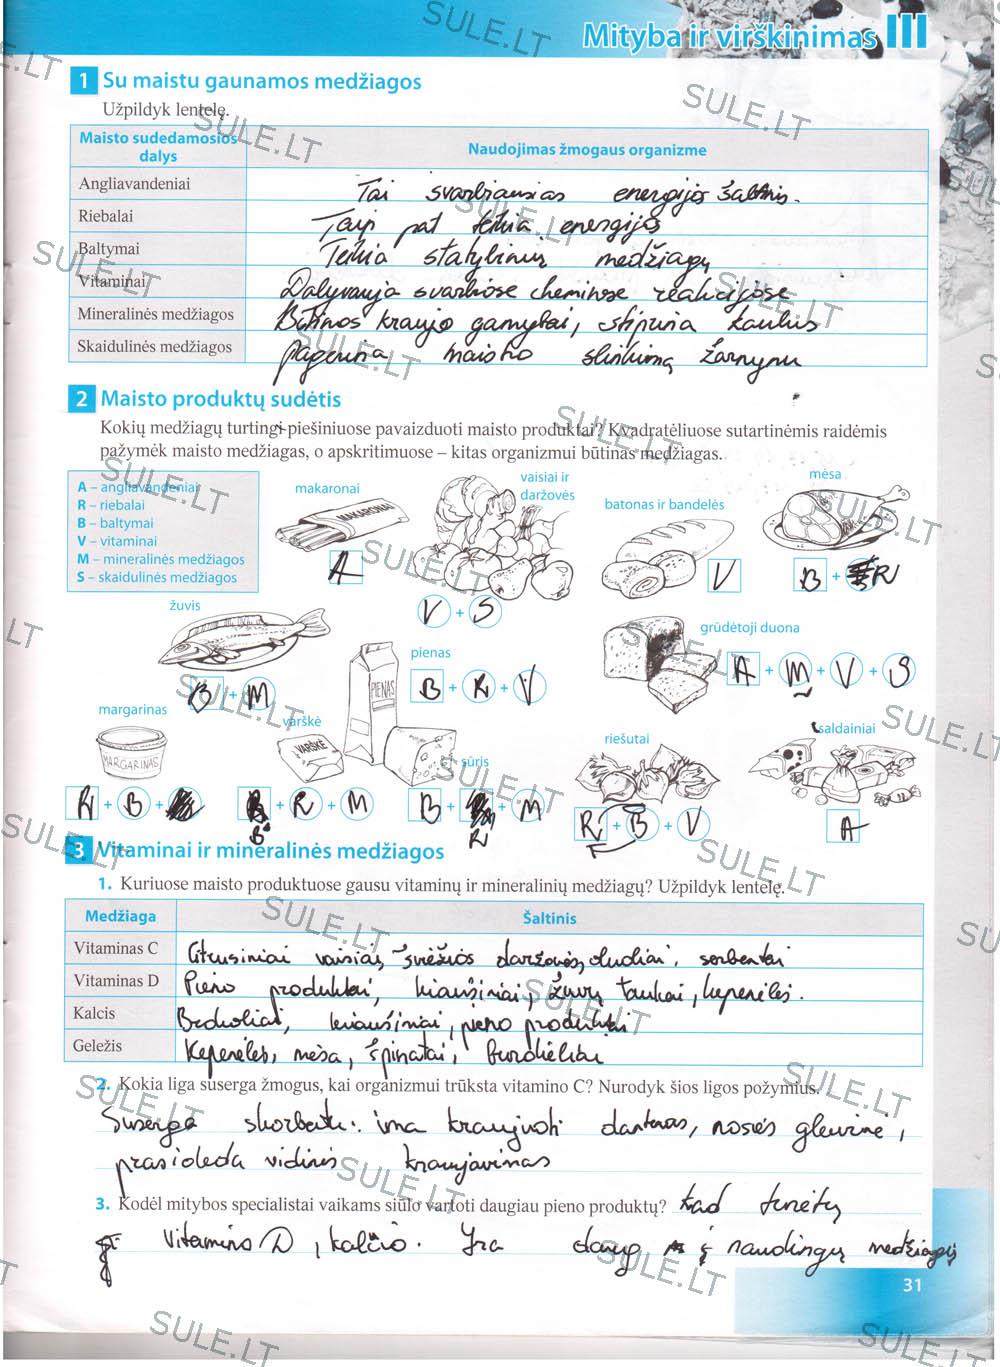 Mityba ir virškinimas III
1 Su maistu gaunamos medžiagos
Užpildyk lentelę.
Maisto sudedamosios dalys
Naudojimas žmogaus organizme
Angliavandeniai Tai svarbiausias energijos šaltinis.
Riebalai Taip pat teikia energijos
Baltymai Teikia statybinių medžiagų
Vitaminai Dalyvauja svarbiose cheminėse reakcijose
Mineralinės medžiagos Būtinos kraujo gamybai, stiprina kaulus
Skaidulinės medžiagos Pagerina maisto slinkimą žarnynu
2 Maisto produktų sudėtis
Kokių medžiagų turtingi piešiniuose pavaizduoti maisto produktai? Kvadratėliuose sutartinėmis raidėmis
pažymėk maisto medžiagas, o apskritimuose – kitas organizmui būtinas medžiagas.
A – angliavandeniai
R – riebalai
B – baltymai
V – vitaminai
M – mineralinės medžiagos
S – skaidulinės medžiagos
makaronai
MAKARONAI
A
vaisiai ir
daržovės
V + S
batonas ir bandelės
V
mėsa
B + R
žuvis
B + M
pienas
PIENAS
B + R + V
grūdėtoji duona
A + M + V + S
margarinas
MARGARINAS
R + B +
varškė
VARŠKĖ
B + R + M
sūris
B + R + M
riešutai
R + B + V
saldainiai
A
3 Vitaminai ir mineralinės medžiagos
1. Kuriuose maisto produktuose gausu vitaminų ir mineralinių medžiagų? Užpildyk lentelę.
Medžiaga Šaltinis
Vitaminas C Citrusiniai vaisiai, šviežios daržovės,
Vitaminas D Pieno produktai, kiaušiniai, žuvų taukai, kepenėlės.
Kalcis Brokoliai, kiaušiniai, pieno produktai
Geležis Kepenėlės, mėsa, špinatai, burokėliai
2. Kokia liga suserga žmogus, kai organizmui trūksta vitamino C? Nurodyk šios ligos požymius.
Suserga skorbutu: ima kraujuoti dantenos, nosies gleivinė,
prasideda vidinis kraujavimas
3. Kodėl mitybos specialistai vaikams siūlo vartoti daugiau pieno produktų? kad turėtų
vitamino D, kalčio. Yra daug naudingų medžiagų
31
SULE.LT